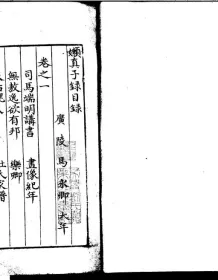 嬾真子錄目錄
廣陵馬永卿大年
卷之一
司馬端明講書 畫像紀年
無教逸欲有邦 樂卿